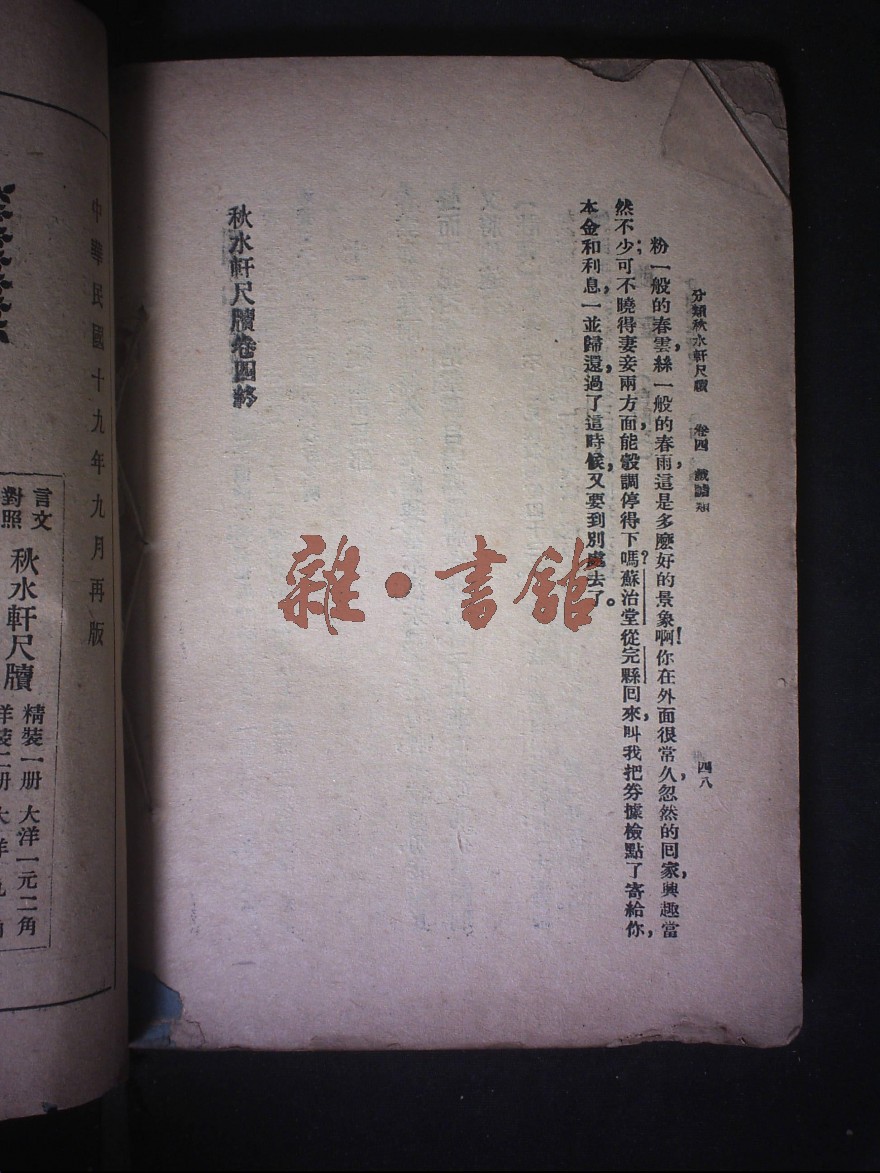 分類秋水軒尺牘　卷四　戲謔類
四八
粉一般的春雲，絲一般的春雨，這是多麽好的景象啊！你在外面很常久，忽然的回家，興趣當
然不少；可不曉得妻妾兩方面，能彀調停得下嗎？蘇治堂從完縣回來，叫我把券據檢點了寄給你，
本金和利息，一並歸還，過了這時候，又要到別處去了。
秋水軒尺牘卷四終
雜·書館
中華民國十九年九月再版
言文
對照
秋水軒尺牘
精裝一册 大洋一元二角
洋裝二册 大洋